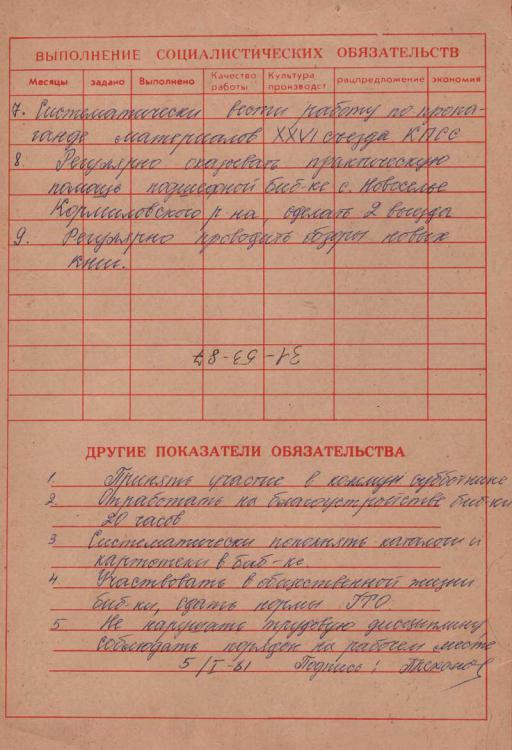 ВЫПОЛНЕНИЕ СОЦИАЛИСТИЧЕСКИХ ОБЯЗАТЕЛЬСТВ
Месяцы задано Выполнено Качество работы Культура производст рацпредложение экономия
7. Систематически вести работу по пропа-
ганде материалов XXVI съезда КПСС
8. Регулярно оказывать практическую
помощь подшефной биб-ке с. Новоселье
Кормиловского р-на, сделать 2 выезда
9. Регулярно проводить обзоры новых
книг.
31-53-87
ДРУГИЕ ПОКАЗАТЕЛИ ОБЯЗАТЕЛЬСТВА
1. Принять участие в коммун. субботнике
2. Отработать на благоустройстве биб-ки
20 часов
3 Систематически пополнять каталоги и
картотеки в биб-ке.
4. Участвовать в общественной жизни
биб-ки, сдать нормы ГТО.
5 Не нарушать трудовую дисциплину
соблюдать порядок на рабочем месте
5/I-81 Подпись: